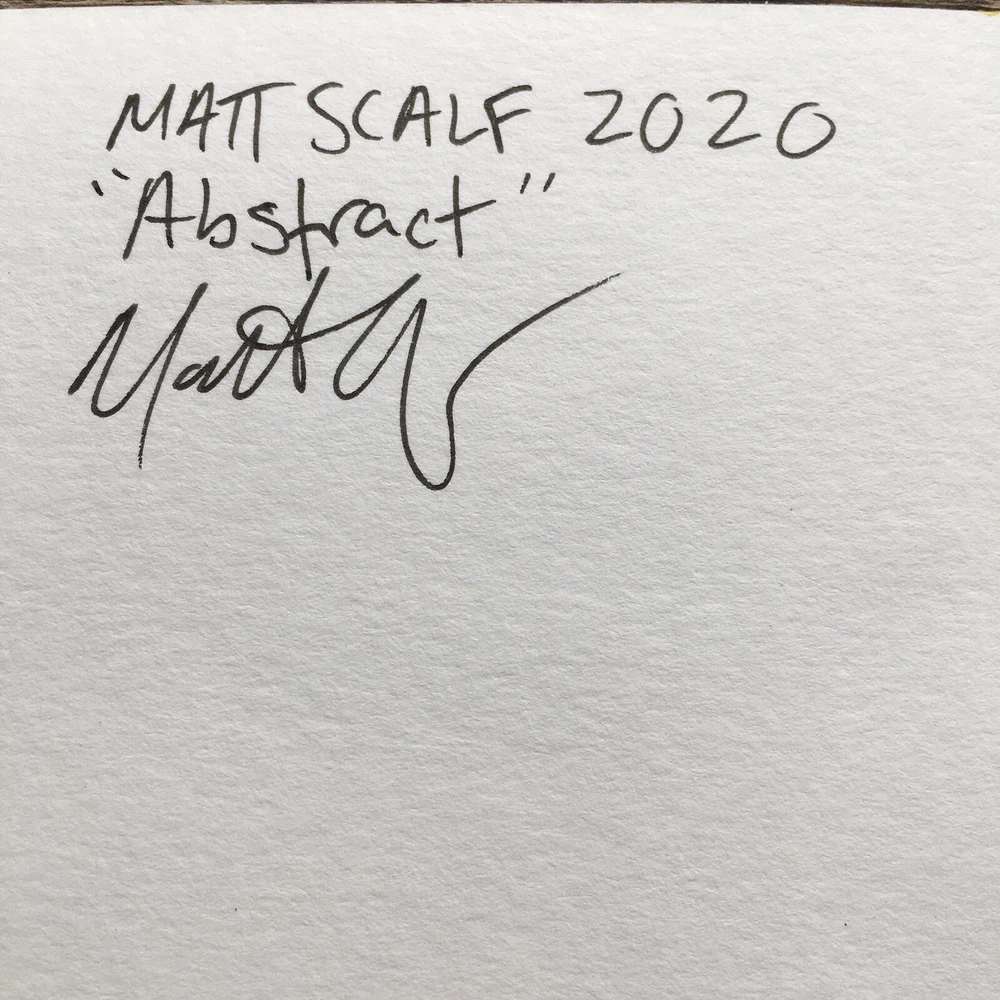 MATT SCALF 2020
"Abstract"
Matt